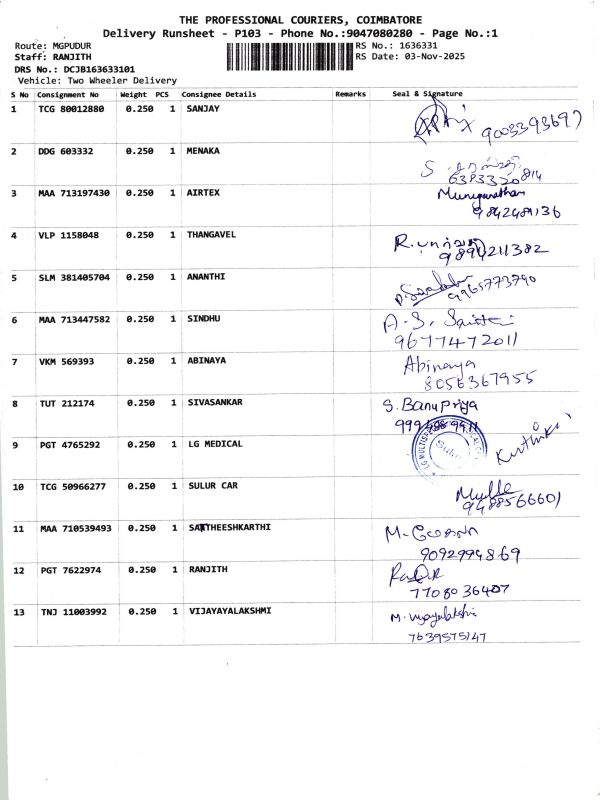 THE PROFESSIONAL COURIERS, COIMBATORE
Delivery Runsheet - P103 - Phone No.:9047080280 - Page No.:1
Route: MGPUDUR RS No.: 1636331
Staff: RANJITH RS Date: 03-Nov-2025
DRS No.: DCJB163633101
Vehicle: Two Wheeler Delivery
S No Consignment No Weight PCS Consignee Details Remarks Seal & Signature
1 TCG 80012880 0.250 1 SANJAY
9003393697
2 DDG 603332 0.250 1 MENAKA
6383320814
3 MAA 713197430 0.250 1 AIRTEX Murugunathan
9842481136
4 VLP 1158048 0.250 1 THANGAVEL R.
9894211382
5 SLM 381405704 0.250 1 ANANTHI
9965773790
6 MAA 713447582 0.250 1 SINDHU A.S.
9677472011
7 VKM 569393 0.250 1 ABINAYA Abinaya
8056367955
8 TUT 212174 0.250 1 SIVASANKAR S. Banupriya
9 PGT 4765292 0.250 1 LG MEDICAL Karthika
10 TCG 50966277 0.250 1 SULUR CAR
9488566601
11 MAA 710539493 0.250 1 SATHEESHKARTHI M.
9092994869
12 PGT 7622974 0.250 1 RANJITH
7708036407
13 TNJ 11003992 0.250 1 VIJAYAYALAKSHMI M. Vijayalakshmi
7639575147